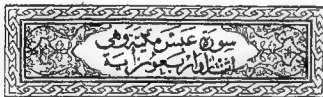 سورة عبس مكية وهي
اثنتان وأربعون آية